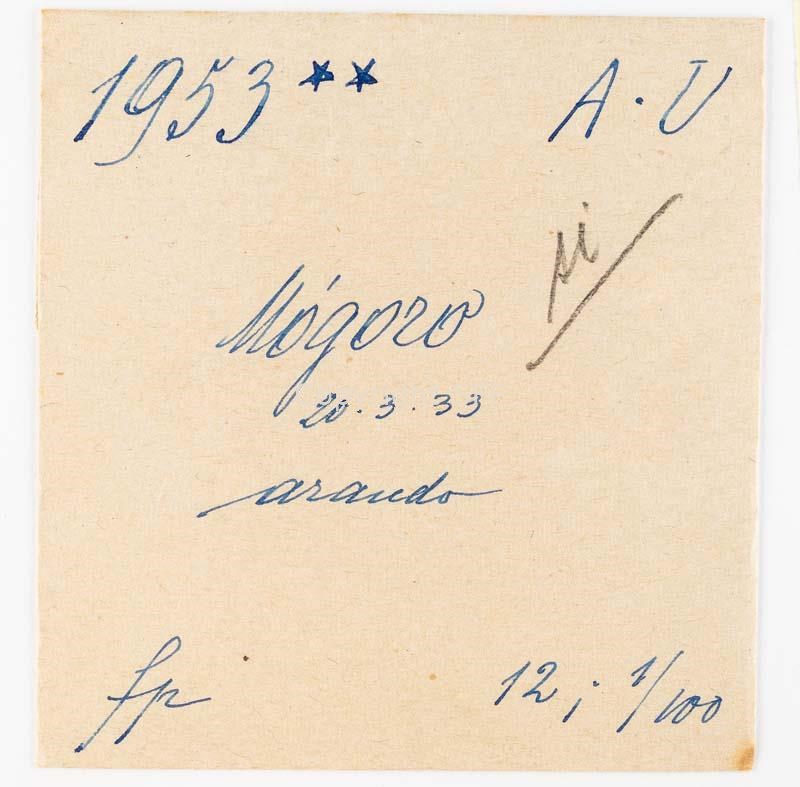 1953 ** A·V
si
Mógoro
20·3·33
arando
fp 12; 1/100